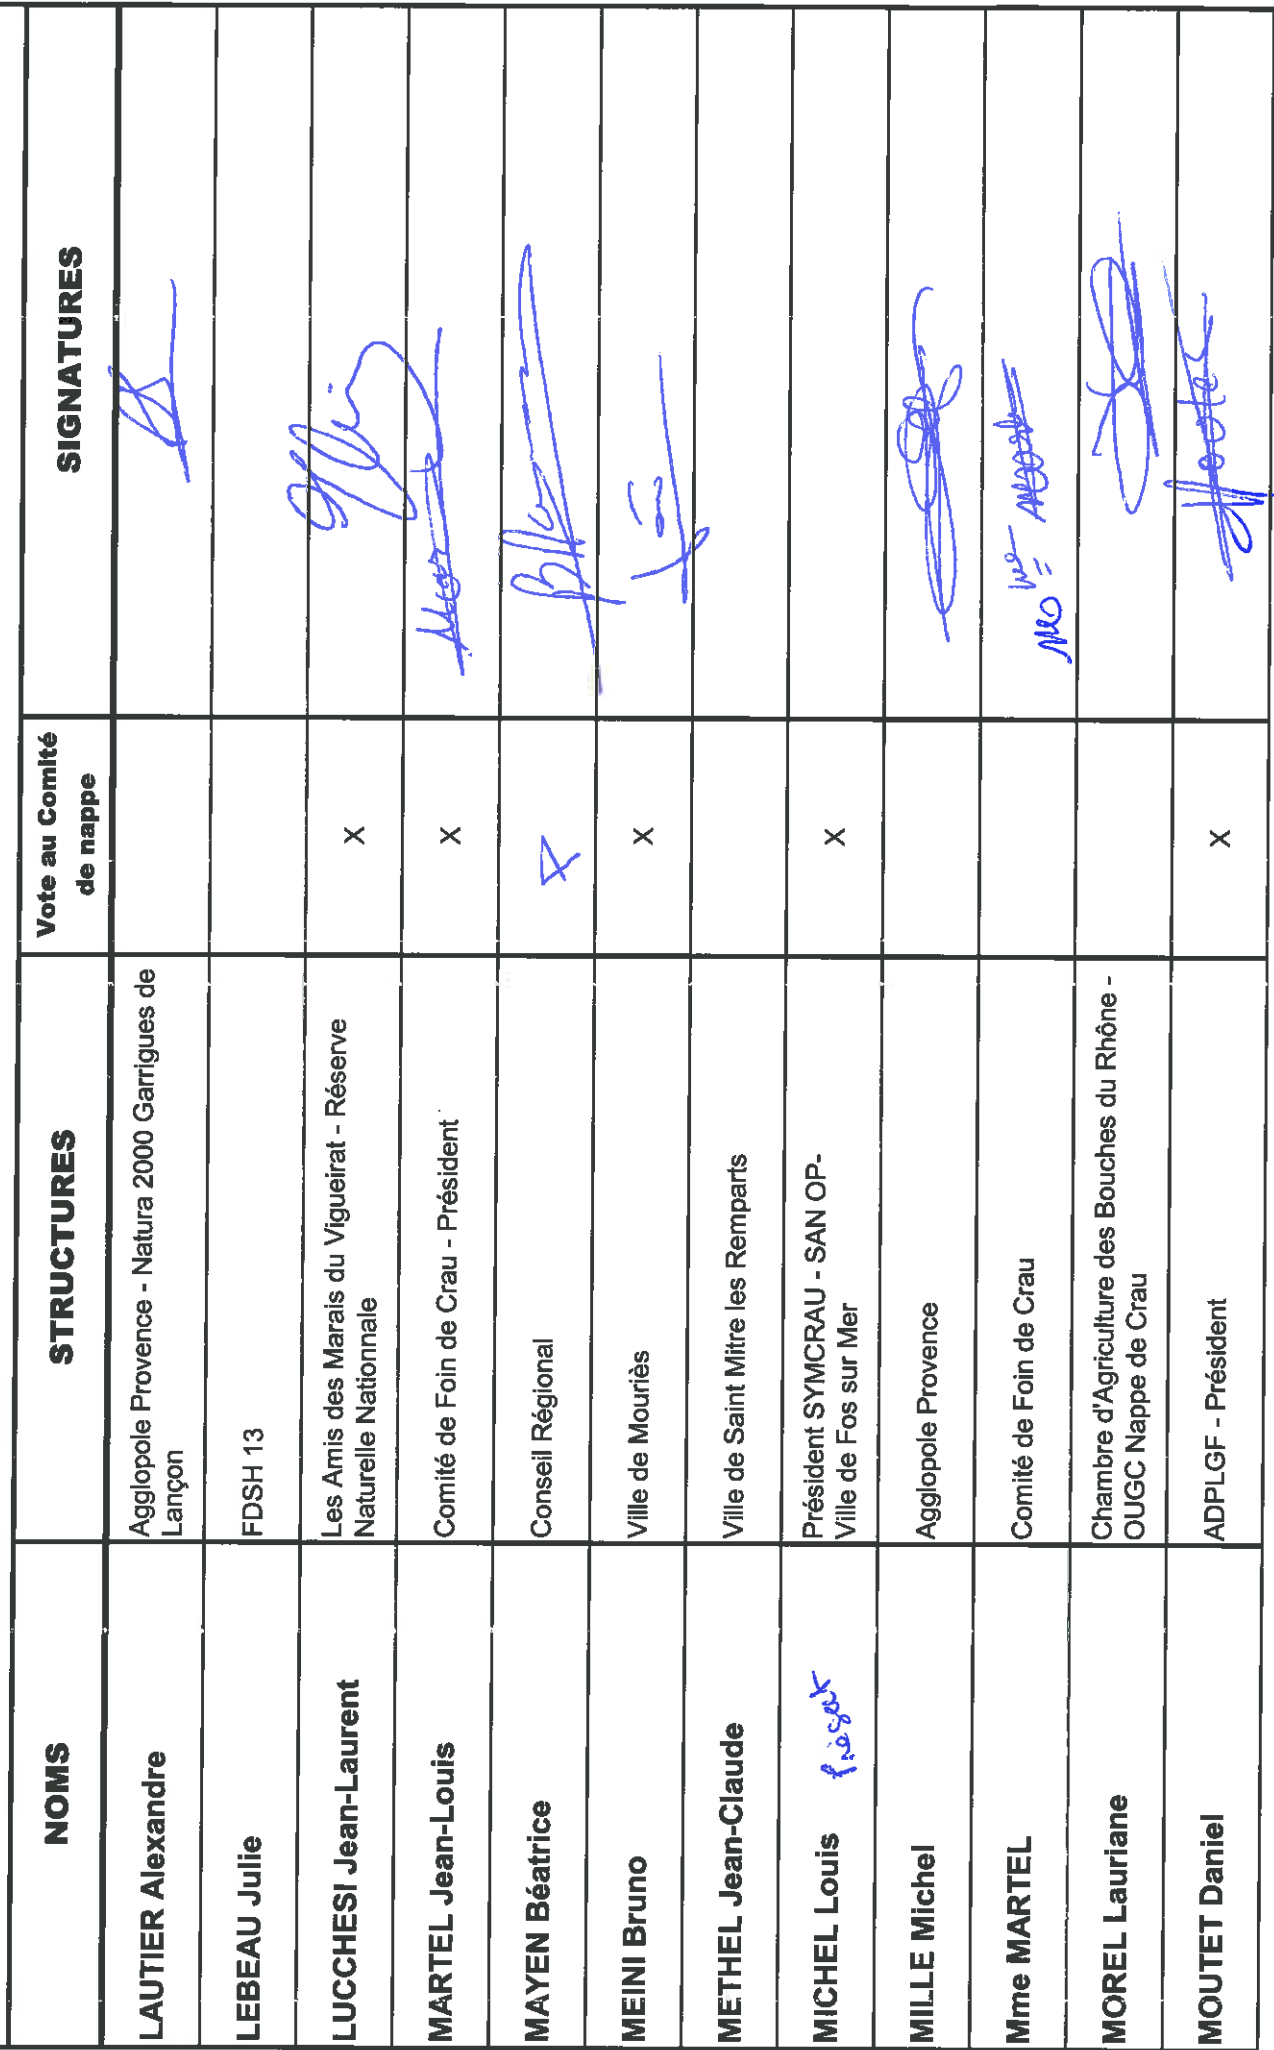 NOMS
STRUCTURES
Vote au Comité
de nappe
SIGNATURES
LAUTIER Alexandre
Agglopole Provence - Natura 2000 Garrigues de
Lançon
LEBEAU Julie
FDSH 13
LUCCHESI Jean-Laurent
Les Amis des Marais du Vigueirat - Réserve
Naturelle Nationnale
X
MARTEL Jean-Louis
Comité de Foin de Crau - Président
X
MAYEN Béatrice
Conseil Régional
X
MEINI Bruno
Ville de Mouriès
X
METHEL Jean-Claude
Ville de Saint Mitre les Remparts
MICHEL Louis
Présent
Président SYMCRAU - SAN OP-
Ville de Fos sur Mer
X
MILLE Michel
Agglopole Provence
Mme MARTEL
Comité de Foin de Crau
MOREL Lauriane
Chambre d'Agriculture des Bouches du Rhône -
OUGC Nappe de Crau
MOUTET Daniel
ADPLGF - Président
X